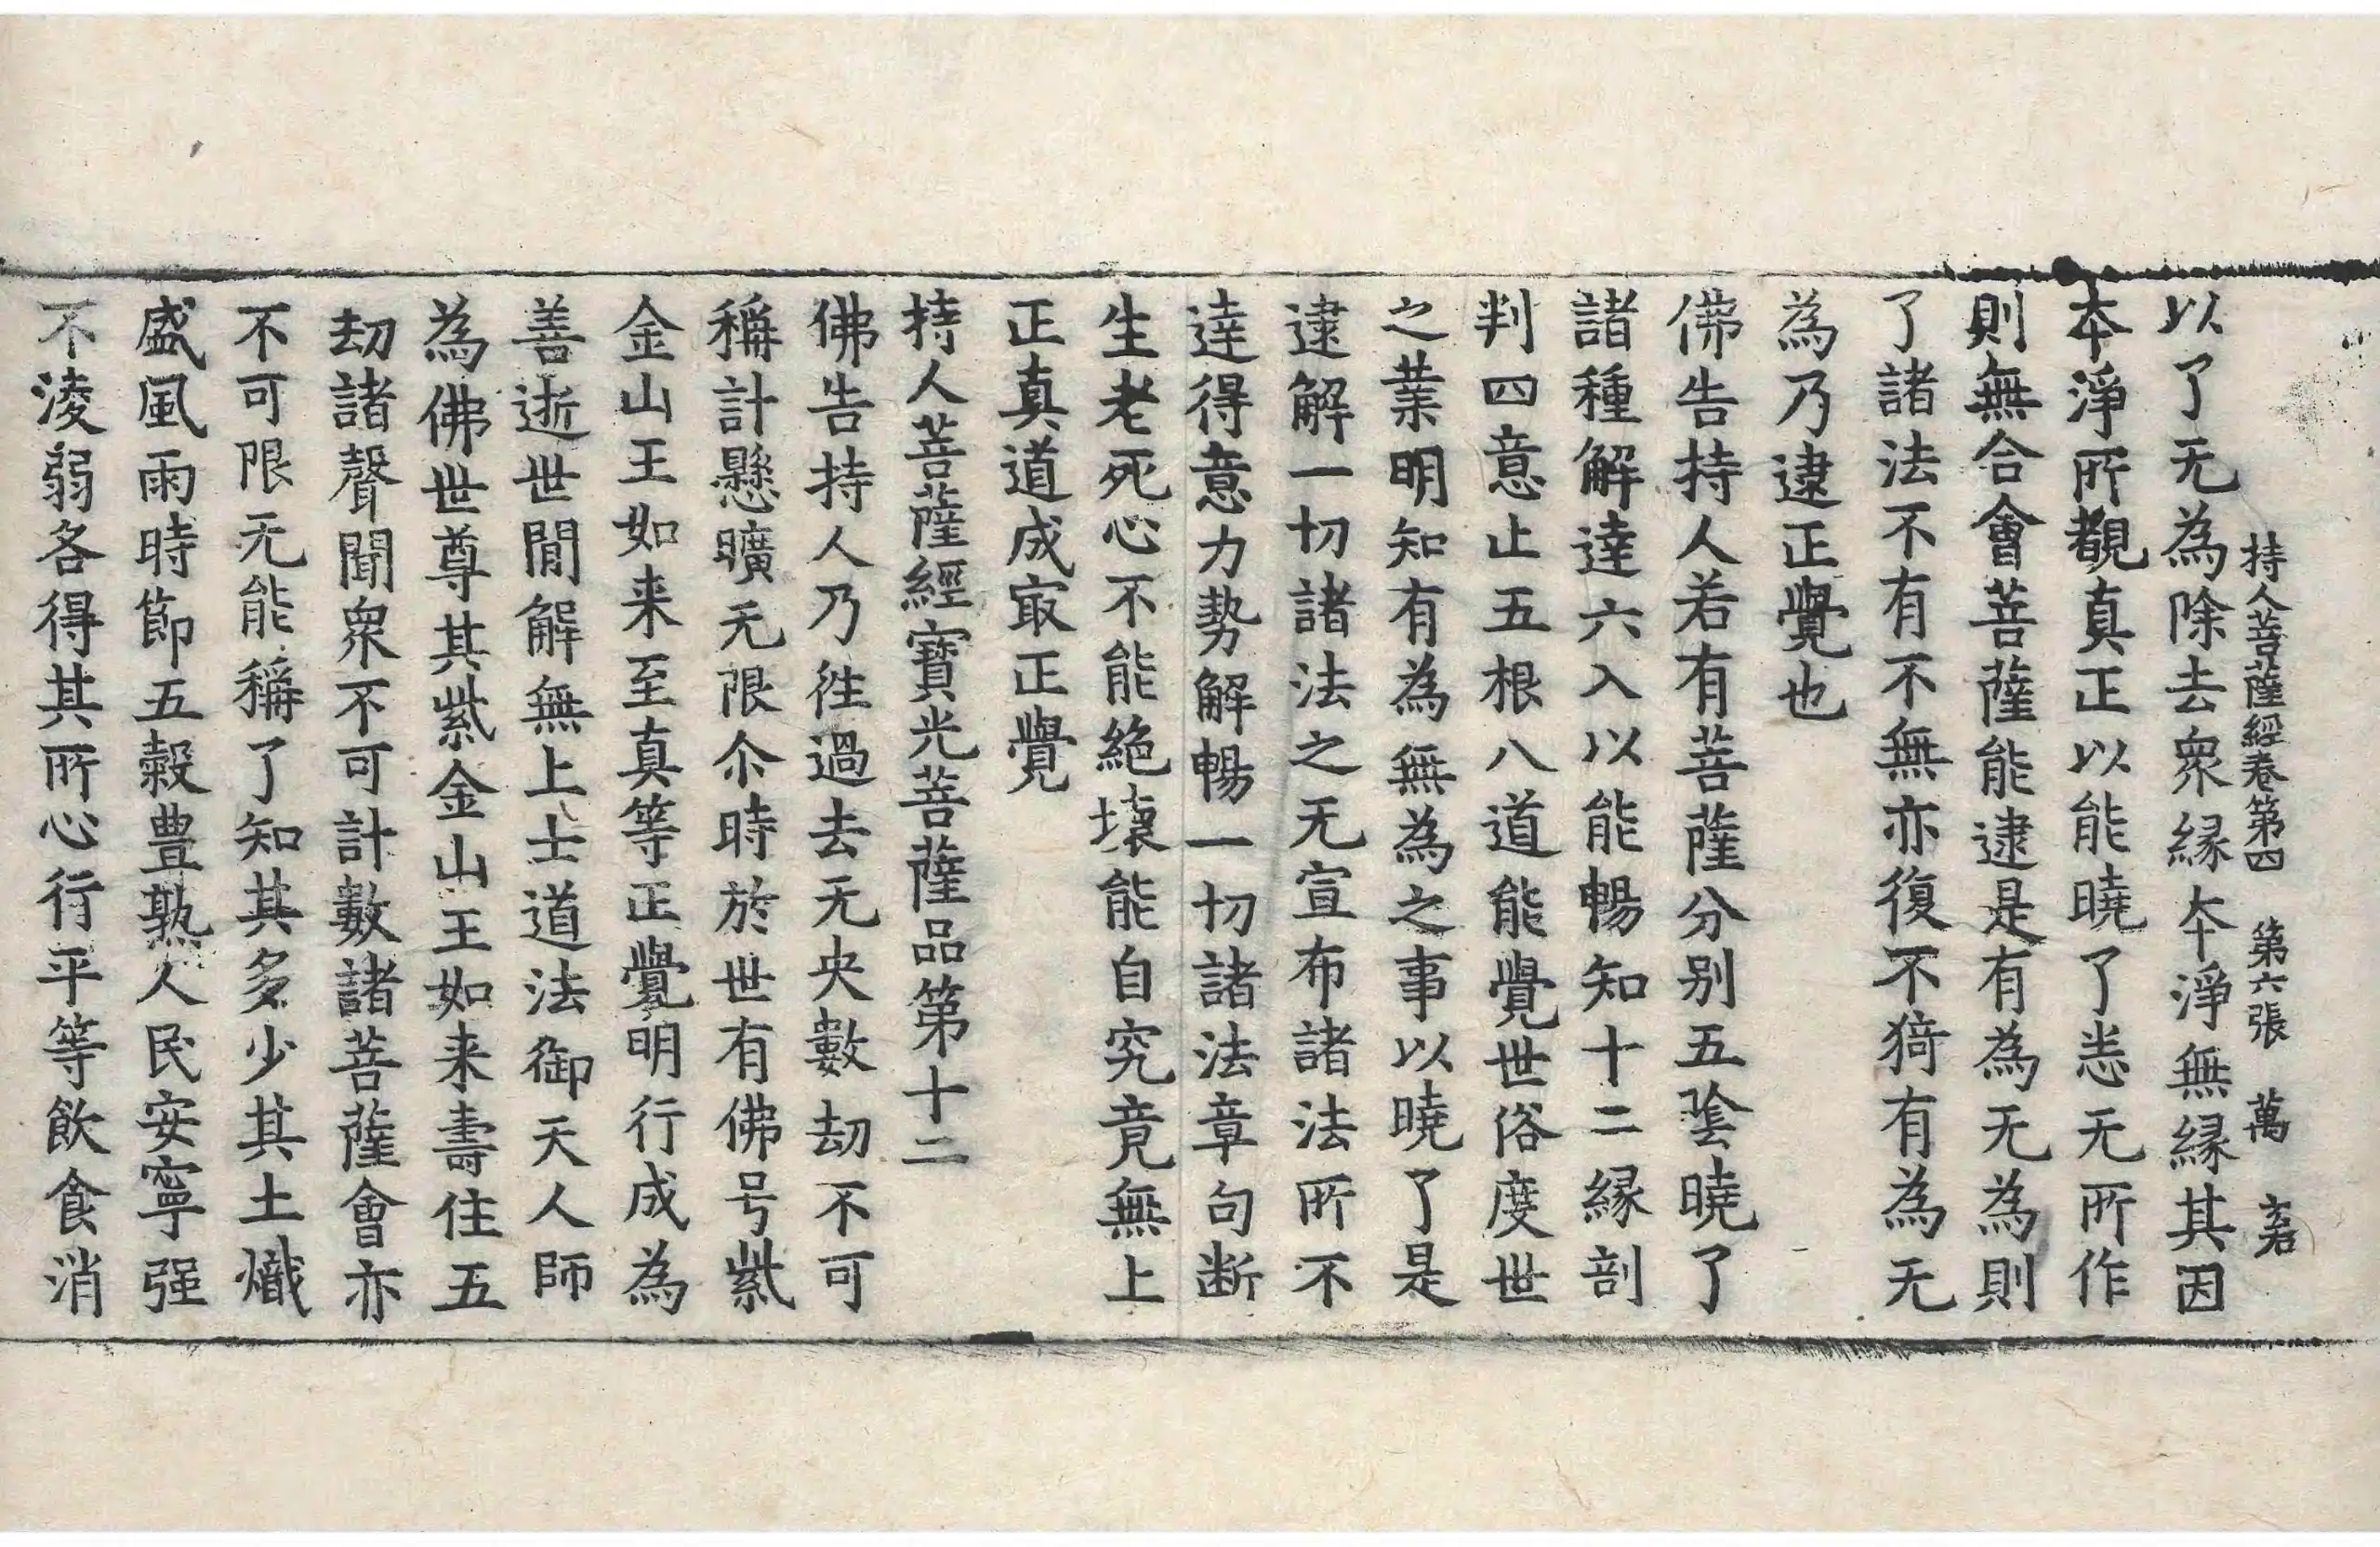 持人菩薩經卷第四　第六張　萬　君
以了无為除去衆縁夲淨無縁其因
夲淨所覩真正以能曉了恙无所作
則無合會菩薩能逮是有為无為則
了諸法不有不無亦復不猗有為无
為乃逮正覺也
佛告持人若有菩薩分别五陰曉了
諸種解達六入以能暢知十二縁剖
判四意止五根八道能覺世俗度世
之業明知有為無為之事以曉了是
逮解一切諸法之无宣布諸法所不
達得意力勢解暢一切諸法章句断
生老死心不能絶壞能自究竟無上
正真道成㝡正覺
持人菩薩經寶光菩薩品第十二
佛告持人乃徃過去无央數劫不可
稱計懸曠无限尒時於世有佛号紫
金山王如来至真等正覺明行成為
善逝世閒解無上士道法御天人師
為佛世尊其紫金山王如来壽住五
劫諸聲聞衆不可計數諸菩薩會亦
不可限无能稱了知其多少其土熾
盛風雨時節五穀豊熟人民安寧强
不淩弱各得其所心行平等飲食消